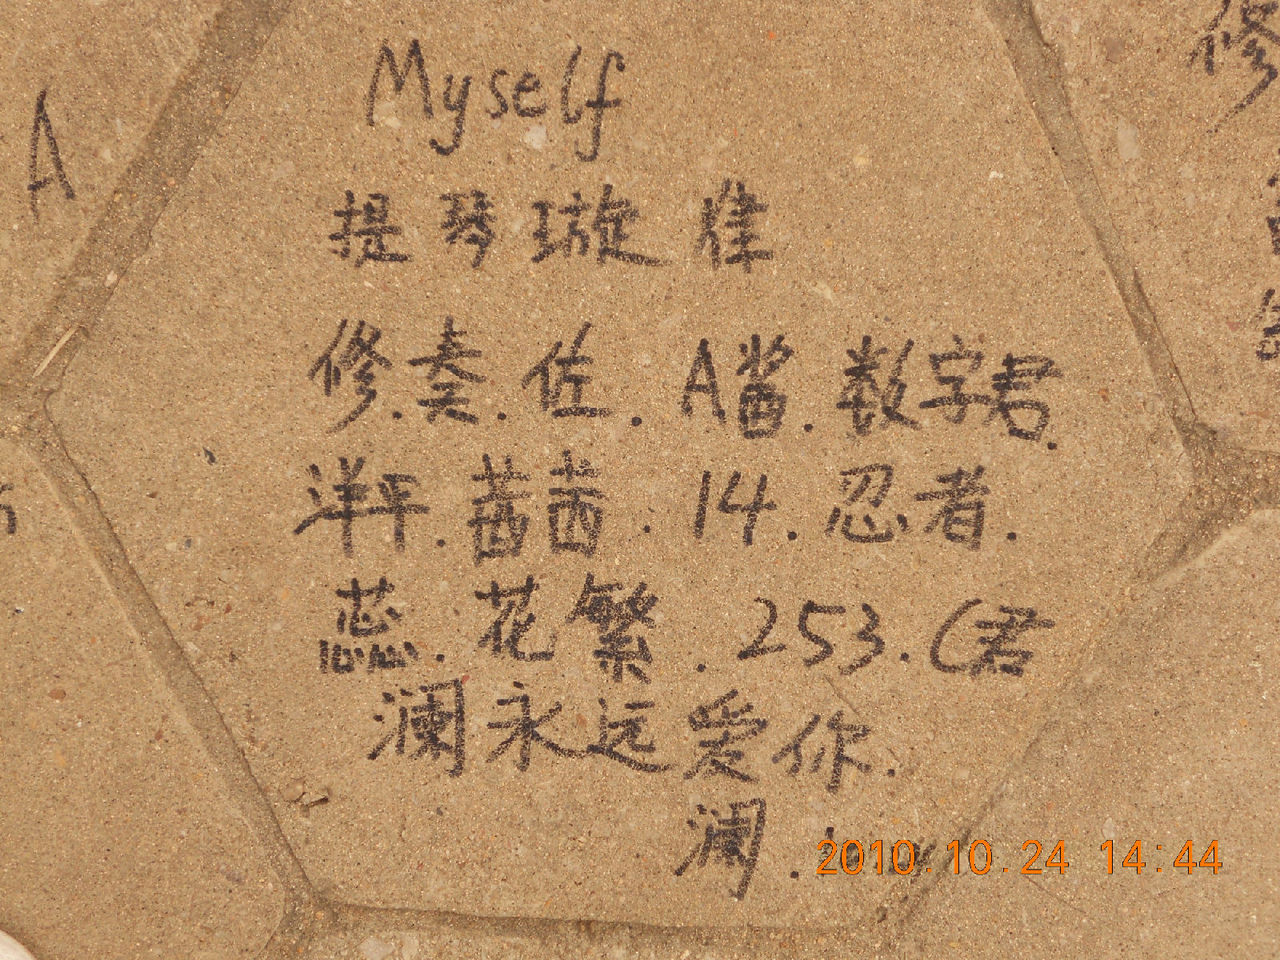 Myself
提琴璇律
修.奏.佐.A酱.数字君.
洋平.茜茜.14.忍者.
蕊.花繁.253.(君
澜永远爱你.
澜.
2010.10.24 14:44
A
修